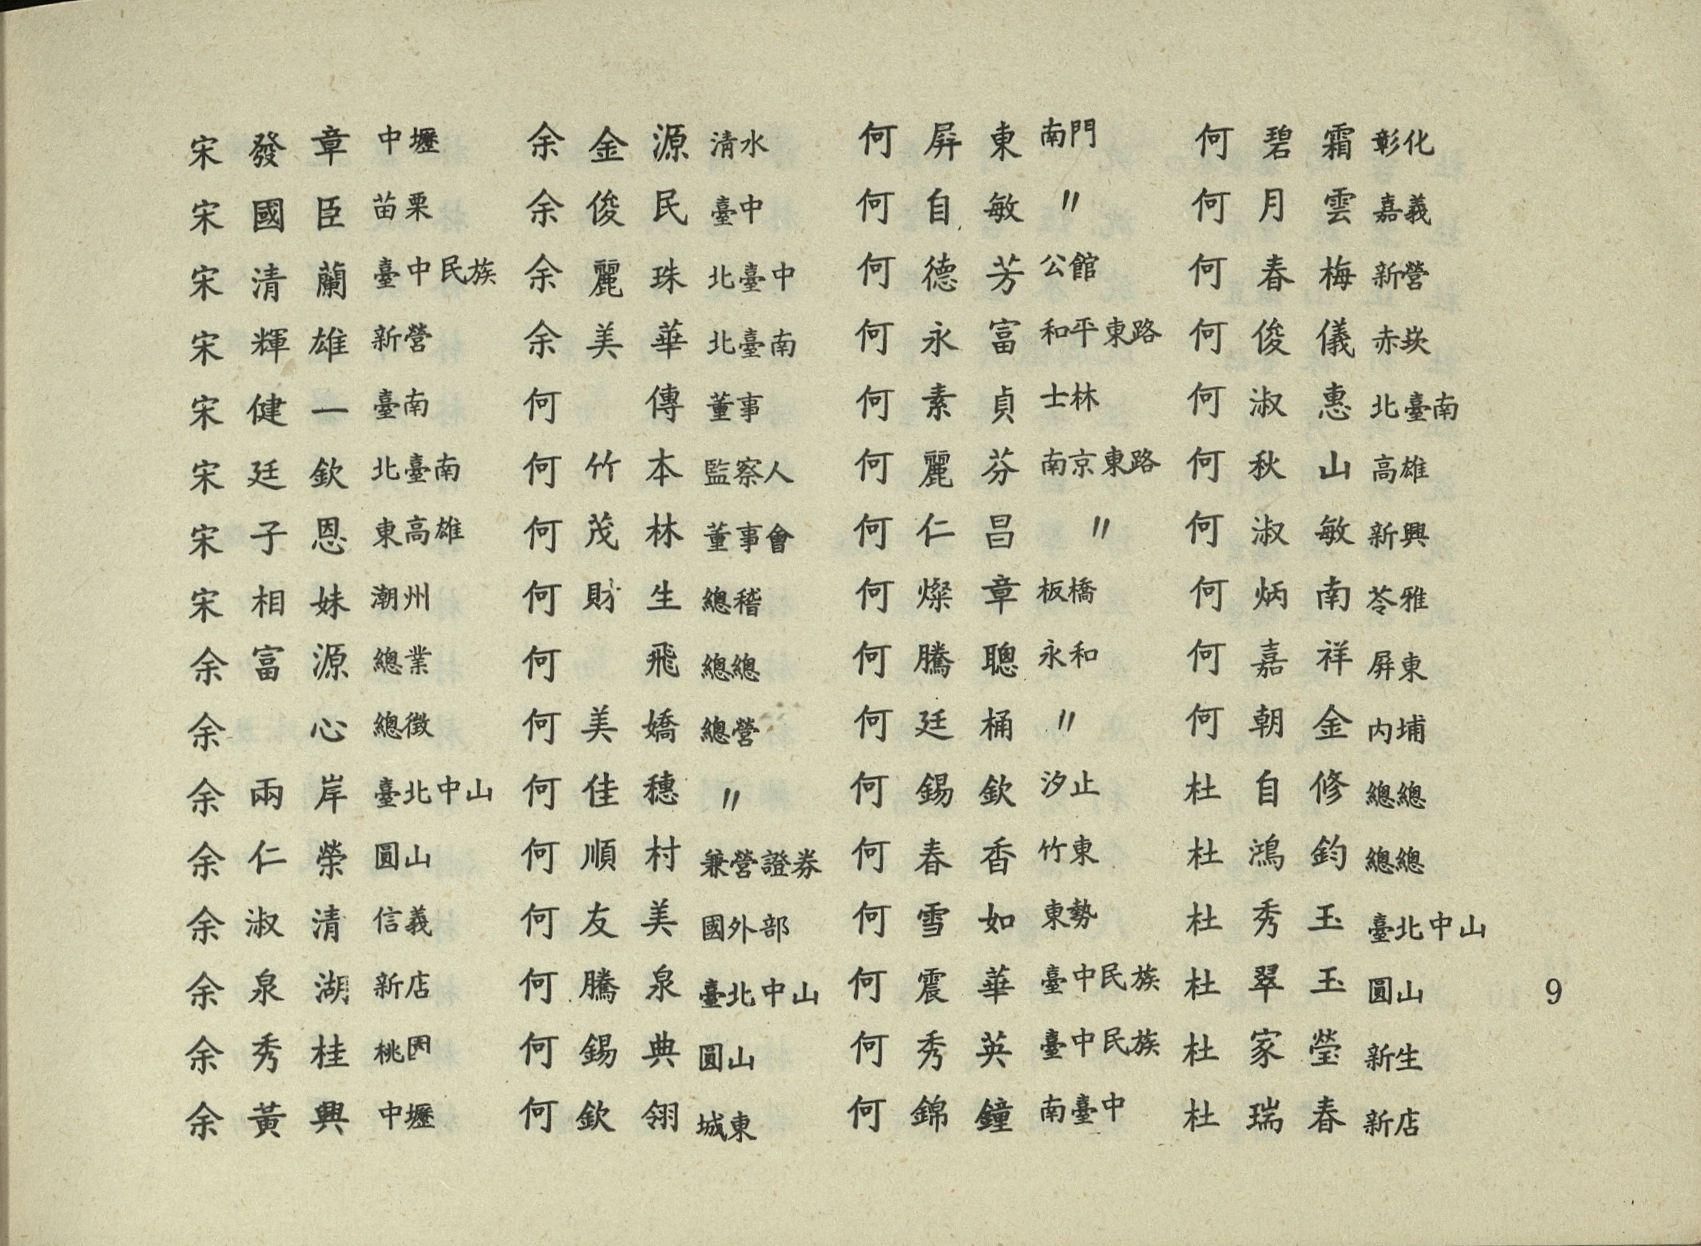 宋發章 中壢
宋國臣 苗栗
宋清蘭 臺中民族
宋輝雄 新營
宋健一 臺南
宋廷欽 北臺南
宋子恩 東高雄
宋相妹 潮州
余富源 總業
余心 總徵
余兩岸 臺北中山
余仁榮 圓山
余淑清 信義
余泉湖 新店
余秀桂 桃園
余黃興 中壢
余金源 清水
余俊民 臺中
余麗珠 北臺中
余美華 北臺南
何傳 董事
何竹本 監察人
何茂林 董事會
何財生 總稽
何飛 總總
何美嬌 總營
何佳穗 〃
何順村 兼營證券
何友美 國外部
何騰泉 臺北中山
何錫典 圓山
何欽翎 城東
何屏東 南門
何自敏 〃
何德芳 公館
何永富 和平東路
何素貞 士林
何麗芬 南京東路
何仁昌 〃
何燦章 板橋
何騰聰 永和
何廷桶 〃
何錫欽 汐止
何春香 竹東
何雪如 東勢
何震華 臺中民族
何秀英 臺中民族
何錦鐘 南臺中
何碧霜 彰化
何月雲 嘉義
何春梅 新營
何俊儀 赤崁
何淑惠 北臺南
何秋山 高雄
何淑敏 新興
何炳南 苓雅
何嘉祥 屏東
何朝金 內埔
杜自修 總總
杜鴻鈞 總總
杜秀玉 臺北中山
杜翠玉 圓山
杜家瑩 新生
杜瑞春 新店
9